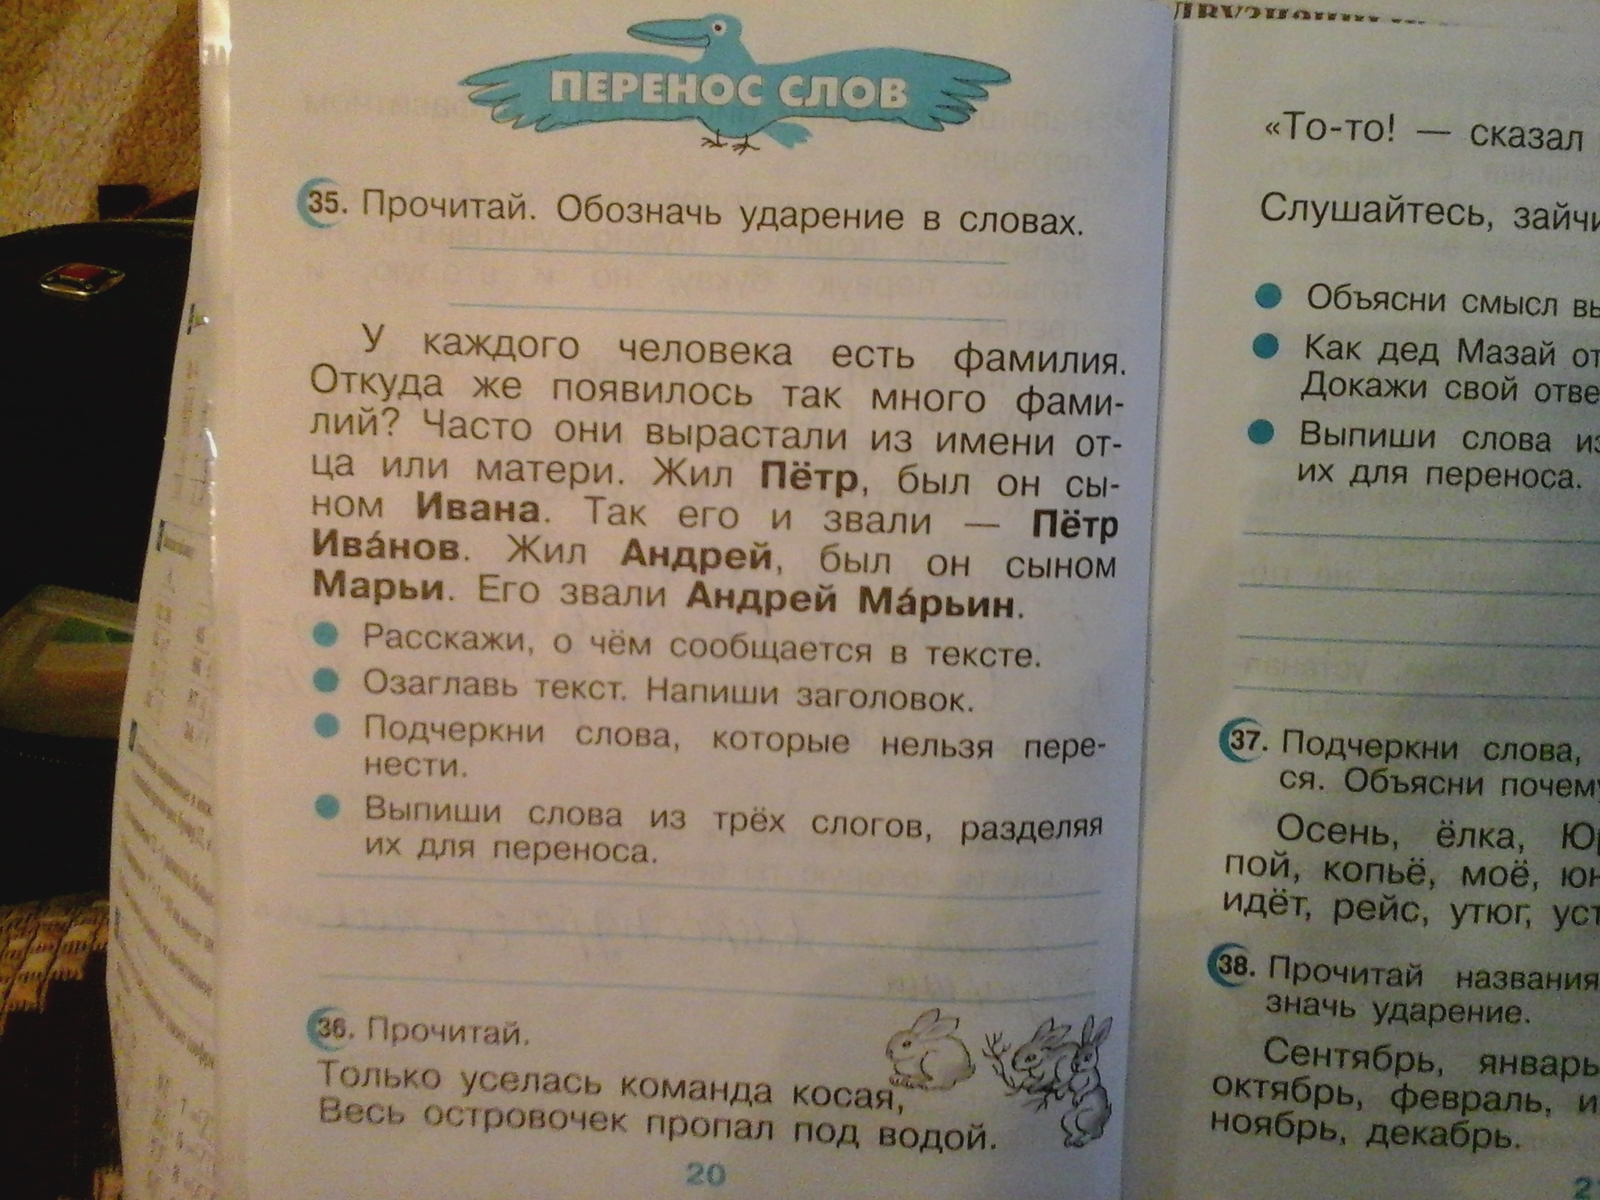 ПЕРЕНОС СЛОВ
35. Прочитай. Обозначь ударение в словах.
У каждого человека есть фамилия.
Откуда же появилось так много фами-
лий? Часто они вырастали из имени от-
ца или матери. Жил Пётр, был он сы-
ном Ивана. Так его и звали — Пётр
Ива́нов. Жил Андрей, был он сыном
Марьи. Его звали Андрей Ма́рьин.
Расскажи, о чём сообщается в тексте.
Озаглавь текст. Напиши заголовок.
Подчеркни слова, которые нельзя пере-
нести.
Выпиши слова из трёх слогов, разделяя
их для переноса.
36. Прочитай.
Только уселась команда косая,
Весь островочек пропал под водой.
20
«То-то! — сказал
Слушайтесь, зайчи
Объясни смысл вы
Как дед Мазай от
Докажи свой отве
Выпиши слова из
их для переноса.
37. Подчеркни слова,
ся. Объясни почему
Осень, ёлка, Юр
пой, копьё, моё, юн
идёт, рейс, утюг, уст
38. Прочитай названия
значь ударение.
Сентябрь, январь
октябрь, февраль, и
ноябрь, декабрь.